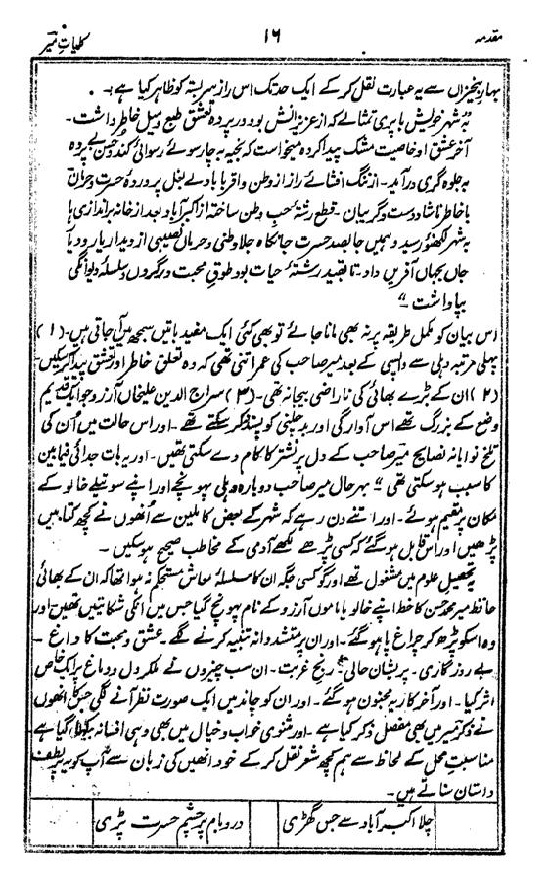 مقدمہ ۱۶ کلیاتِ میر
بہار بیخزاں سے یہ عبارت نقل کر کے ایک حد تک اس راز سربستہ کو ظاہر کیا ہے:۔
بہ شہر خویش با پری تمثالے کہ از عزیزانش بود در پردہ تعشق طبع و میل خاطر داشت۔
آخر عشق او خاصیت مشک پیدا کردہ میخواست کہ بخیہ بہ چار سوئے رسوائی کند و حسن بے پردہ
بہ جلوہ گری در آمد۔ از ننگ افشائے راز از وطن و اقربا با دلے بغل پروردۂ حسرت و حرماں
با خاطر ناشاد دست و گریباں۔ قطع رشتۂ حب وطن ساختہ از اکبر آباد بعد از خانہ براندازی ہا
بہ شہر لکھنؤ رسید و ہمیں جا بصد حسرت جانکاہ جلا وطنی و حرماں نصیبی از دیدار یار و دیار
جاں بجہاں آفریں داد۔ تا بقید رشتۂ حیات بود طوقِ محبت در گردن و سلسلۂ دیوانگی
بپا داشت "
اس بیان کو مکمل طریقہ پر نہ بھی مانا جائے تو بھی کئی ایک مفید باتیں سمجھ میں آ جاتی ہیں۔ (۱)
پہلی مرتبہ دہلی سے واپسی کے بعد میر صاحب کی عمر اتنی تھی کہ وہ تعلق خاطر اور تعشق پیدا کر سکیں۔
(۲) ان کے بڑے بھائی کی ناراضی بیجا نہ تھی۔ (۳) سراج الدین علیخاں آرزو جو ایک قدیم
وضع کے بزرگ تھے اس آوارگی اور بد چلنی کو پسند نہ کر سکتے تھے۔ اور اس حالت میں اُن کی
تلخ نوایانہ نصایح میر صاحب کے دل پر نشتر کا کام دے سکتی تھیں۔ اور یہ بات جدائی فیما بین
کا سبب ہو سکتی تھی " بہر حال میر صاحب دوبارہ دہلی پہونچے اور اپنے سوتیلے خالو کے
مکان پر مقیم ہوئے۔ اور اتنے دن رہے کہ شہر کے بعض کاملین سے اُنھوں نے کچھ کتابیں
پڑھیں اور اس قابل ہو گئے کہ کسی پڑھے لکھے آدمی کے مخاطب صحیح ہو سکیں۔
یہ تحصیل علوم میں مشغول تھے اور گو کسی جگہ ان کا سلسلۂ معاش مستحکم نہ ہوا تھا کہ ان کے بھائی
حافظ میر محمد حسن کا خط اپنے خالو یا ماموں آرزو کے نام پہونچ گیا جس میں انکی شکایتیں تھیں۔ اور
وہ اسکو پڑھ کر چراغ پا ہو گئے۔ اور ان پر متشددانہ تنبیہ کرنے لگے۔ عشق و محبت کا داغ۔
بے روزگاری۔ پریشان حالی۔ رنج غربت۔ ان سب چیزوں نے ملکر دل و دماغ پر ایک خاص
اثر کیا۔ اور آخر کار یہ مجنون ہو گئے۔ اور ان کو چاند میں ایک صورت نظر آنے لگی جسکا انھوں
نے ذکر میر میں بھی مفصل ذکر کیا ہے۔ اور مثنوی خواب و خیال میں بھی وہی افسانہ لکھا گیا ہے
مناسبت محل کے لحاظ سے ہم کچھ شعر نقل کر کے خود انھیں کی زبان سے آپ کو یہ پر لطف
داستان سناتے ہیں۔
چلا اکبر آباد سے جس گھڑی در و بام پر چشم حسرت پڑی